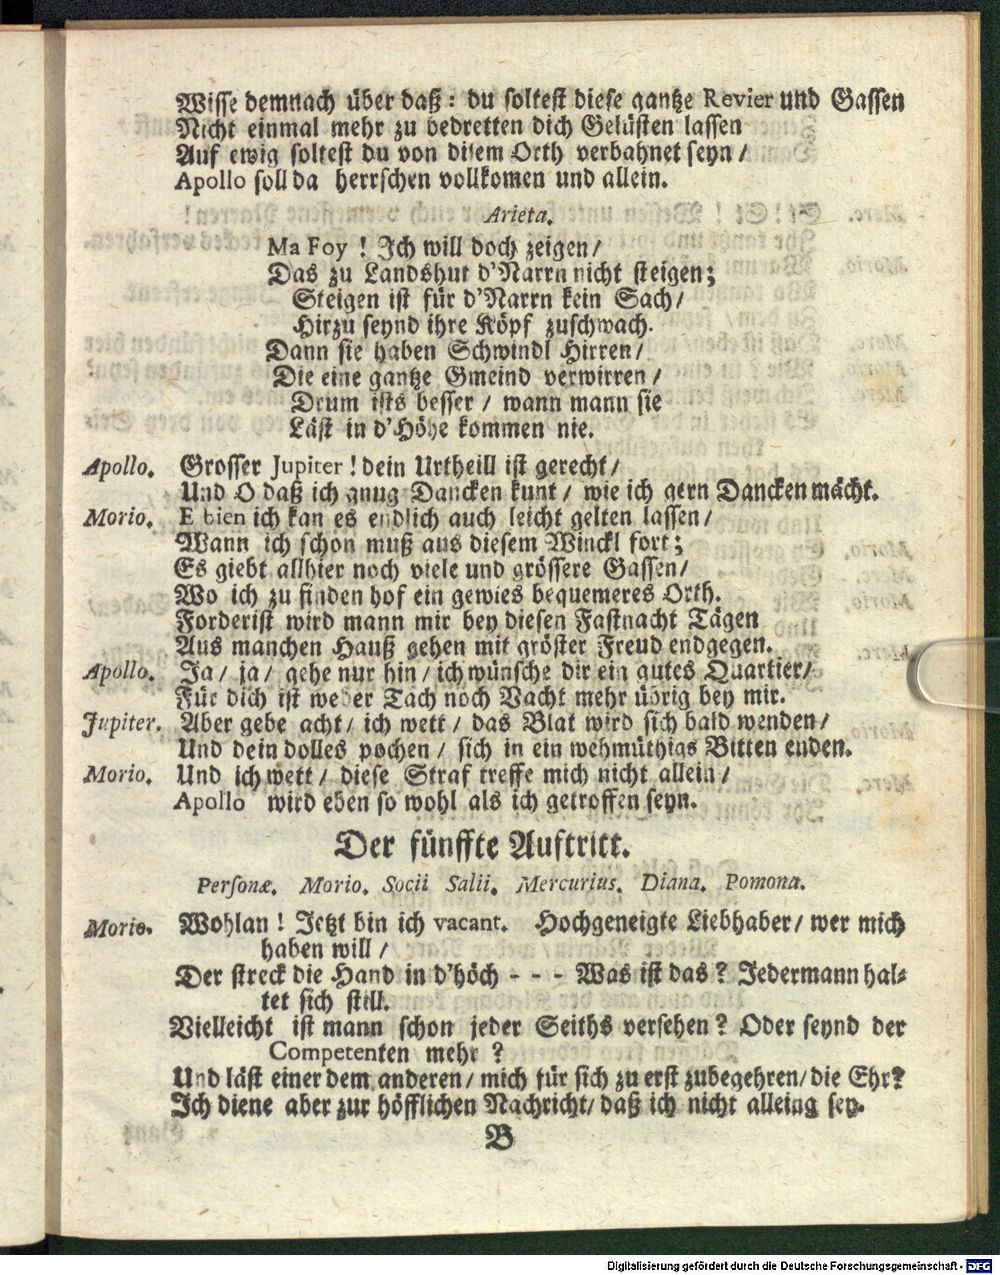 Wisse demnach über daß: du soltest diese gantze Revier und Gassen
Nicht einmal mehr zu bedretten dich Gelüsten lassen
Auf ewig soltest du von disem Orth verbahnet seyn /
Apollo soll da herrschen vollkomen und allein.
Arieta.
Ma Foy ! Jch will doch zeigen /
Das zu Landshut d'Narrn nicht steigen;
Steigen ist für d'Narrn kein Sach /
Hirzu seynd ihre Köpf zuschwach.
Dann sie haben Schwindl Hirren /
Die eine gantze Gmeind verwirren /
Drum ists besser / wann mann sie
Läst in d'Höhe kommen nie.
Apollo. Grosser Jupiter ! dein Urtheill ist gerecht /
Und O daß ich gnug Dancken kunt / wie ich gern Dancken mächt.
Morio. E bien ich kan es endlich auch leicht gelten lassen /
Wann ich schon muß aus diesem Winckl fort;
Es giebt allhier noch viele und grössere Gassen /
Wo ich zu finden hof ein gewies bequemeres Orth.
Forderist wird mann mir bey diesen Fastnacht Tägen
Aus manchen Hauß gehen mit gröster Freud endgegen.
Apollo. Ja / ja / gehe nur hin / ich wünsche dir ein gutes Quartier /
Für dich ist weder Tach noch Vacht mehr übrig bey mir.
Jupiter. Aber gebe acht / ich wett / das Blat wird sich bald wenden /
Und dein dolles pochen / sich in ein wehmüthigs Bitten enden.
Morio. Und ich wett / diese Straf treffe mich nicht allein /
Apollo wird eben so wohl als ich getroffen seyn.
Der fünffte Auftritt.
Personæ. Morio. Socii Salii. Mercurius. Diana. Pomona.
Morio. Wohlan ! Jetzt bin ich vacant. Hochgeneigte Liebhaber / wer mich
haben will /
Der streck die Hand in d'höch - - - Was ist das ? Jedermann hal-
tet sich still.
Vielleicht ist mann schon jeder Seiths versehen ? Oder seynd der
Competenten mehr ?
Und läst einer dem anderen / mich für sich zu erst zubegehren / die Ehr?
Jch diene aber zur höfflichen Nachricht / daß ich nicht alleing sey.
B
Digitalisierung gefördert durch die Deutsche Forschungsgemeinschaft - DFG